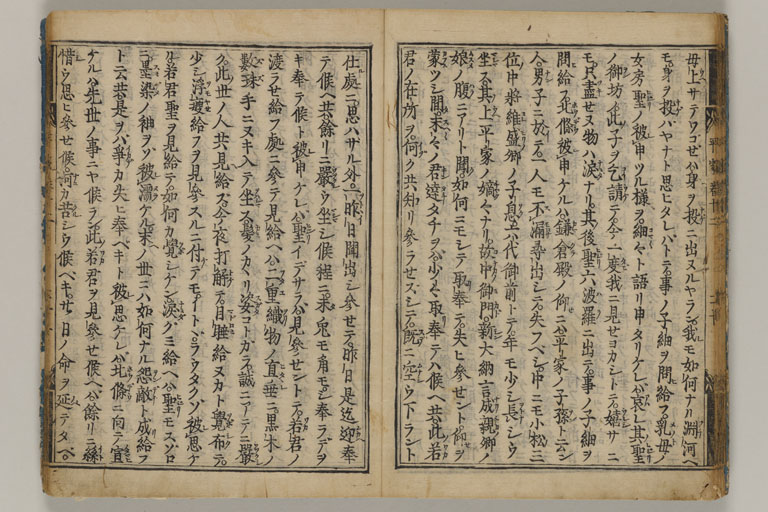 母上サテワコゼハ身ヲ投ニ出ヌルヤラン我モ如何ナル淵河ヘ
モ身ヲ投ハヤナト思ヒタレハトテ事ノ子細ヲ問給フ乳母ノ
女房聖ノ被申ツル様ヲ細々ト語リ申タリケレハ哀レ其聖
ノ御坊ノ此子ヲ乞請テ今一度我ニ見セヨカシトテ嬉サニ
モ只盡セヌ物ハ涙ナリ其後聖六波羅ニ出テ事ノ子細ヲ
問給フ北條被申ケルハ鎌倉殿ノ仰ニハ平家ノ子孫ト云ン
人男子ニ於テハ一人モ不漏尋出シテ失フベシ中ニモ小松三
位中將維盛卿ノ子息六代御前トテ年モ少シ長シウ
坐ス其上平家ノ嫡々ナリ故中御門新大納言成親卿ノ
娘ノ腹ニアリト聞如何ニモシテ取奉テ失ヒ參セント仰ヲ
蒙ツシ間末々ノ君達タチヲハ少々取奉テハ候ヘ共此若
君ノ在所ヲ何ク共知リ參ラセズシテ既ニ空ウ下ラント
仕處ニ思ハサル外一昨日聞出シ參セテ昨日是迄迎奉
テ候ヘ共餘リニ嚴ウ坐シ候程ニ未兎モ角モシ奉ラデヲ
キ奉テ候ト被申ケレハ聖イデサラハ見參セントテ若君ノ
渡ラセ給フ處ニ參テ見給ヘハ二重織物ノ直垂ニ黒木ノ
數珠手ニヌキ入テ坐ス髮ノカヽリ姿コトカラ誠ニアテニ嚴
ク此世ノ人共見給ス今夜打解テ目睡給ヌカト覺布テ
少シ浮疲給フヲ見參スルニ付テモイトヾラウタクゾ被思ケ
ル若君聖ヲ見給テ如何カ覺シケン涙グミ給ヘハ聖モスゾロ
ニ墨染ノ袖ヲソ被濡ケル末ノ世ニハ如何ナル怨敵ト成給フ
ト云共是ヲハ爭カ失ヒ奉ベキト被思ケレハ北條ニ向テ宣
ケルハ先世ノ事ニヤ候ラン此若君ヲ見參セ候ヘハ餘リニ絲
惜ウ思ヒ參セ候何カ苦シウ候ベキ廿日ノ命ヲ延テタベ